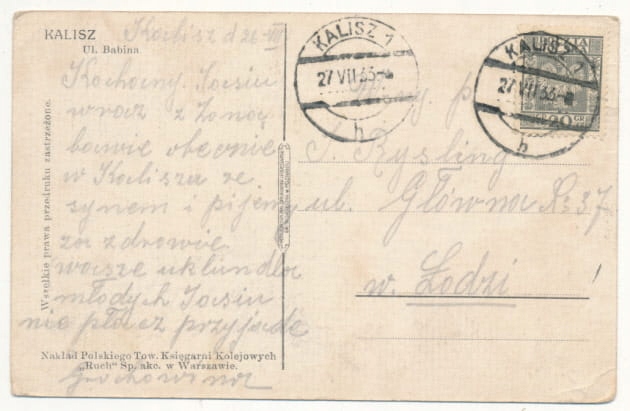 KALISZ
Ul. Babina
Kalisz d 26 VII
Kochany Jasiu
wraz z Żoną
bawię obecnie
w Kaliszu ze
synem i pijem
za zdrowie
wasze ukłun dla
młodych Jasiu
nie płacz przyjadę
Grochowina
"Wszelkie prawa przedruku zastrzeżone.
Nakład Polskiego Tow. Księgarni Kolejowych
„Ruch" Sp. akc. w Warszawie.
KALISZ 1
27 VII 33
h
KALISZ 1
27 VII 33
h
20 GR
p.
J. Rysling
ul. Główna № 37
w. Łodzi